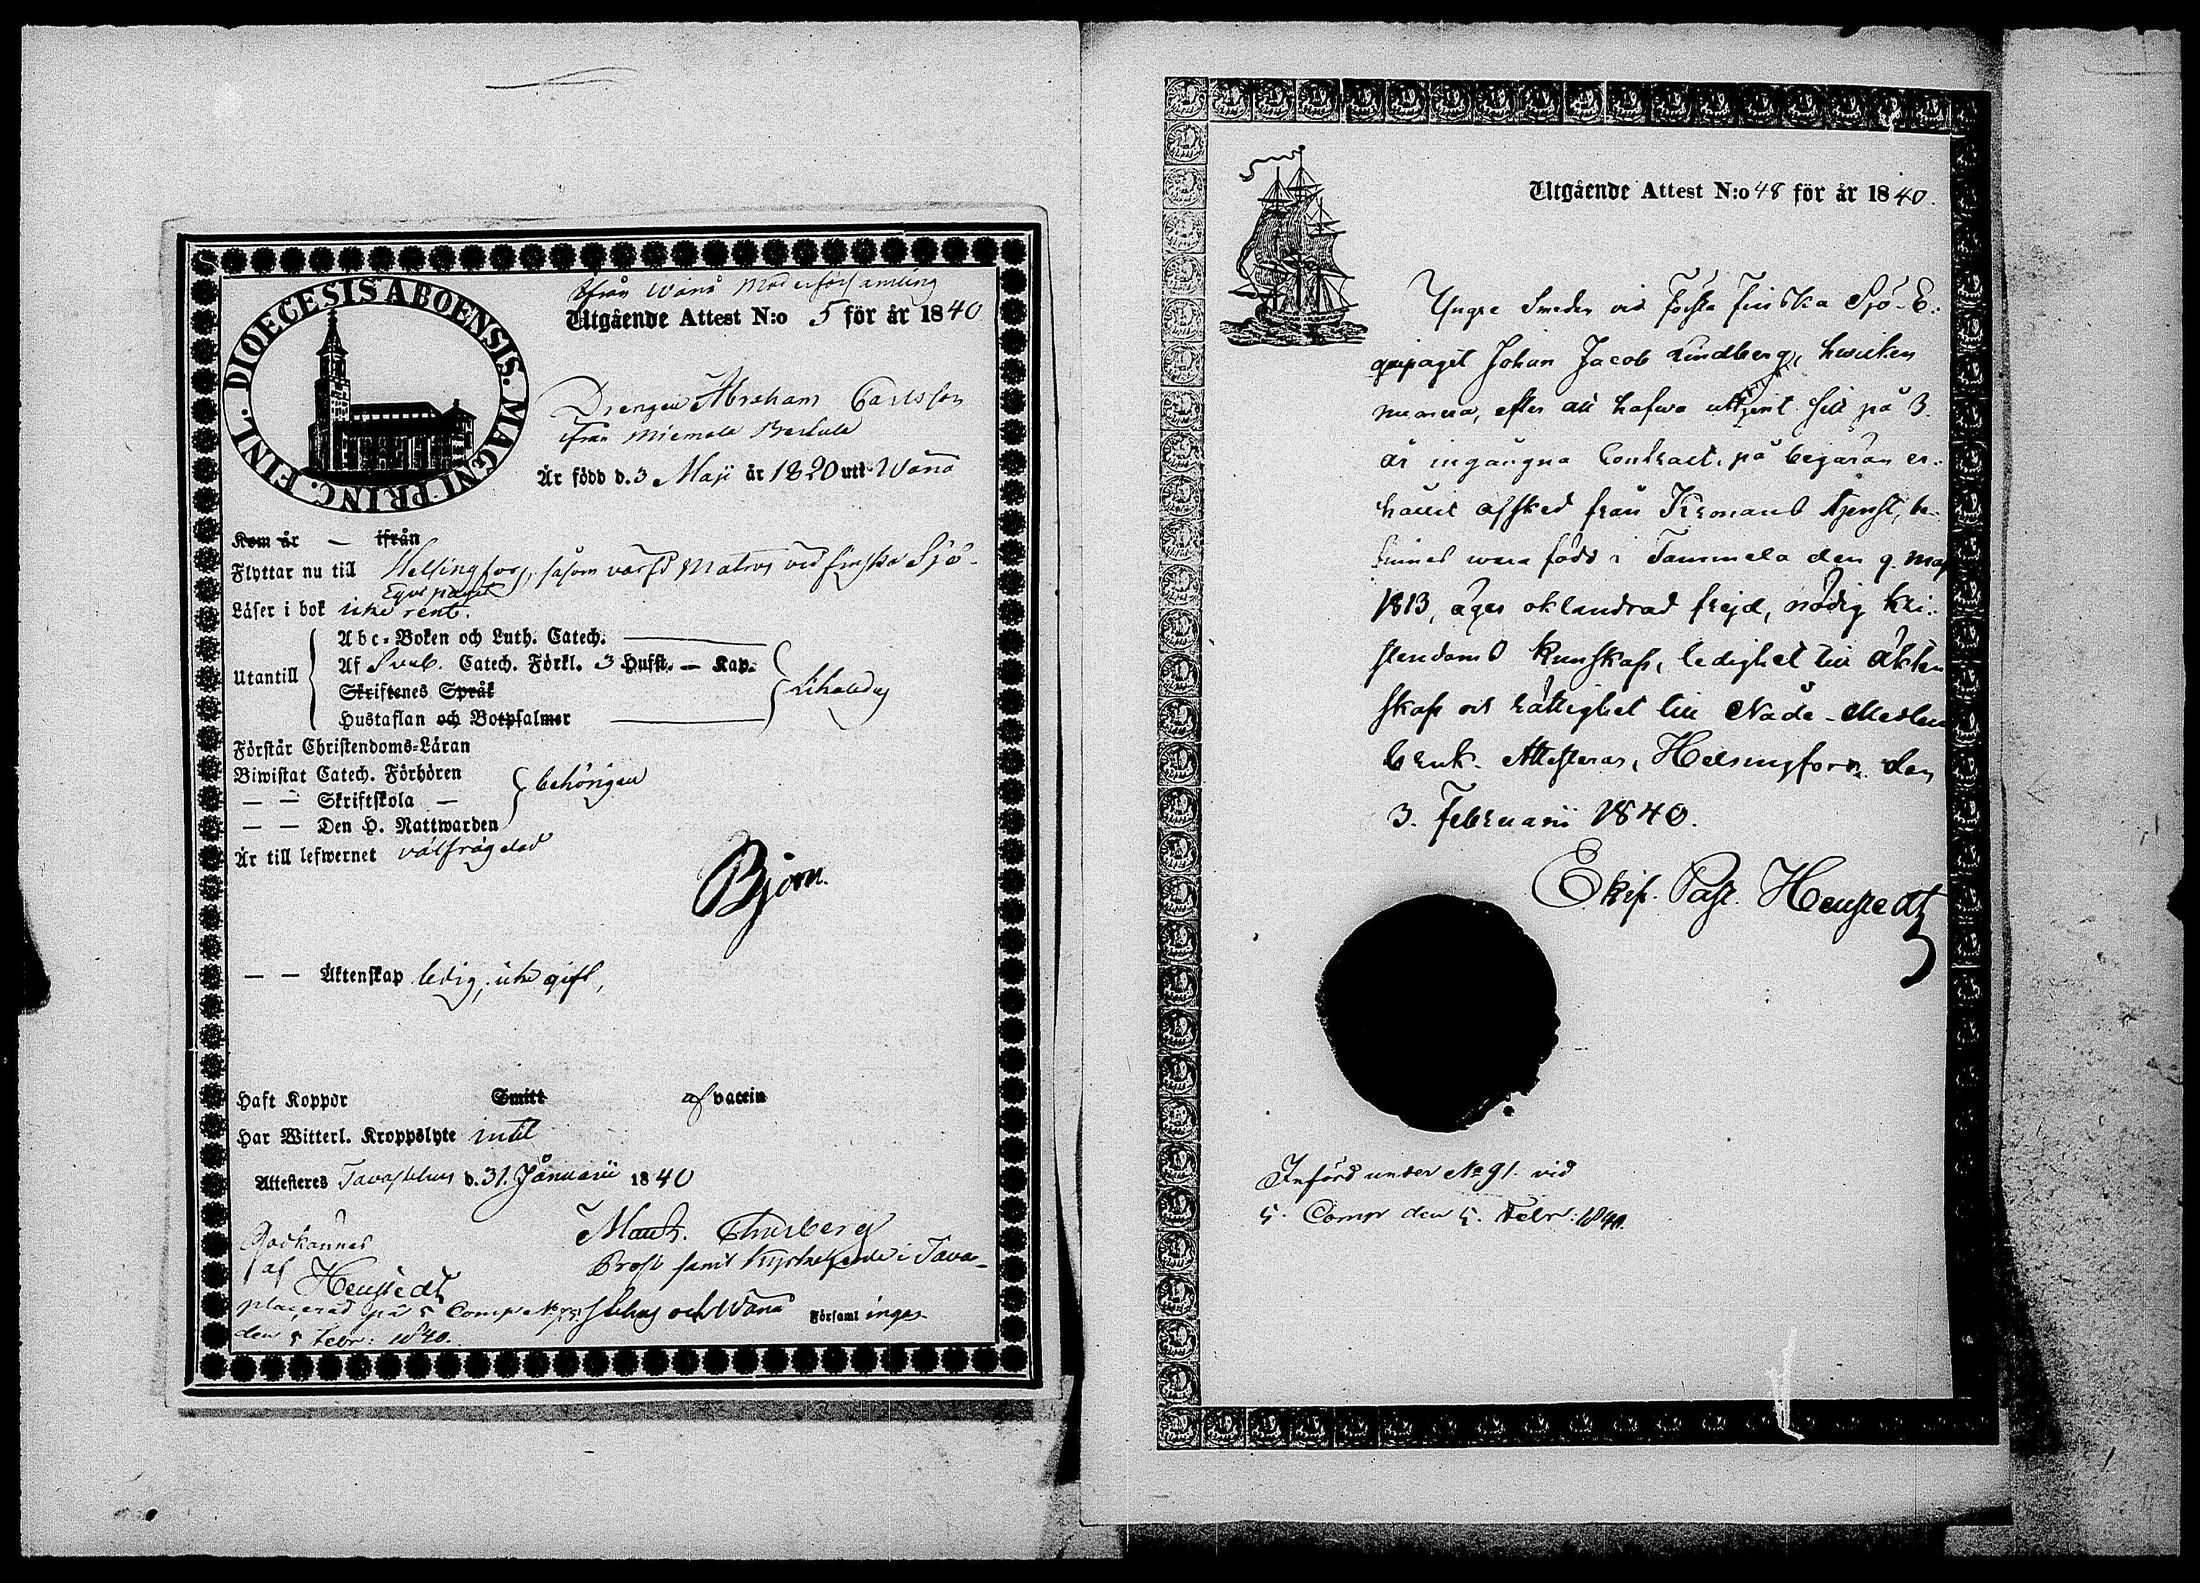 DIOECESIS ABOENSIS. MAGNI PRINC. FINL.
Ifrån Wånå Moderförsamling
Utgående Attest N:o 5 för år 1840
Drengen Abraham Carlsson
ifrån Miemala Bertula
Är född d. 3 Maji år 1820 uti Wånå
Kom år — ifrån
Flyttar nu till Helsingfors, såsom värfd Matros vid Finska Sjö-
Eqvipaget
Läser i bok icke rent.
Abc-Boken och Luth. Catech.
Utantill
Af Sveb. Catech. Förkl. 3 Hufst. — Kap.
Skriftenes Språk
Hustaflan och Botpsalmer
Förstår Christendoms-Läran
Biwistat Catech. Förhören
behörigen
— — Skriftskola —
— — Den H. Nattwarden
Är till lefwernet välfrägdad
Björn.
— — Äktenskap ledig, icke gift,
Haft Koppor Smitt af vaccin
Har Witterl. Kroppslyte intet
Attesteres Tavastehus d. 31. Januarii 1840
Godkännes
af Henstedt
Thurberg
Prost samt Kyrkoherde i Tava-
stehus och Wånå Församlingar
placerad på 5 Comp. No
den 5 Febr: 1840.
Utgående Attest N:o 48 för år 1840.
Yngre Smeden vid Första Finska Sjö-E-
quipaget Johan Jacob Lindberg, hwilken
numera, efter att hafwa uttjent sitt på 3.
år ingångna Contract, på begäran er-
hållit afsked från Kronans tjenst, be-
finnes wara född i Tammela den 9. Maj
1813, äger oklandrad frejd, nödig kri-
stendoms kunskap, ledighet till äkten
skap och rättighet till Nåde-Medlens
bruk. Attesteras, Helsingfors den
3. Februarii 1840.
Ekip. Past. Henstedt
Införd under No 91. vid
5. Comp den 5. Febr. 1840.